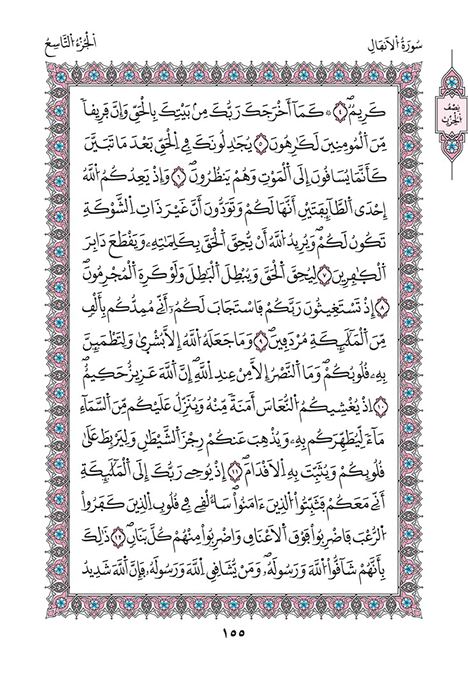 سُورَةُ الْأَنفَالِ
الْجُزْءُ التَّاسِعُ
نِصْفُ الْحِزْبِ
كَرِيمٌ ٤ ۞ كَمَآ أَخْرَجَكَ رَبُّكَ مِنۢ بَيْتِكَ بِالْحَقِّ وَإِنَّ فَرِيقاً
مِّنَ الْمُومِنِينَ لَكَٰرِهُونَ ٥ يُجَٰدِلُونَكَ فِي الْحَقِّ بَعْدَ مَا تَبَيَّنَ
كَأَنَّمَا يُسَاقُونَ إِلَى الْمَوْتِ وَهُمْ يَنظُرُونَ ٦ وَإِذْ يَعِدُكُمُ اللَّهُ
إِحْدَى الطَّآئِفَتَيْنِ أَنَّهَا لَكُمْ وَتَوَدُّونَ أَنَّ غَيْرَ ذَاتِ الشَّوْكَةِ
تَكُونُ لَكُمْ وَيُرِيدُ اللَّهُ أَنْ يُّحِقَّ الْحَقَّ بِكَلِمَٰتِهِۦ وَيَقْطَعَ دَابِرَ
الْكٰ۪فِرِينَ ٧ لِيُحِقَّ الْحَقَّ وَيُبْطِلَ الْبَٰطِلَ وَلَوْ كَرِهَ الْمُجْرِمُونَ
٨ إِذْ تَسْتَغِيثُونَ رَبَّكُمْ فَاسْتَجَابَ لَكُمُۥٓ أَنِّي مُمِدُّكُم بِأَلْفٍ
مِّنَ الْمَلَٰٓئِكَةِ مُرْدَفِينَ ٩ وَمَا جَعَلَهُ اللَّهُ إِلَّا بُشْر۪يٰ وَلِتَطْمَئِنَّ
بِهِۦ قُلُوبُكُمْ وَمَا النَّصْرُ إِلَّا مِنْ عِندِ اللَّهِ إِنَّ اللَّهَ عَزِيزٌ حَكِيمٌ
١٠ إِذْ يُغْشِيكُمُ النُّعَاسَ أَمَنَةً مِّنْهُ وَيُنَزِّلُ عَلَيْكُم مِّنَ السَّمَآءِ
مَآءً لِّيُطَهِّرَكُم بِهِۦ وَيُذْهِبَ عَنكُمْ رِجْزَ الشَّيْطَٰنِ وَلِيَرْبِطَ عَلَىٰ
قُلُوبِكُمْ وَيُثَبِّتَ بِهِ الْأَقْدَامَ ١١ إِذْ يُوحِي رَبُّكَ إِلَى الْمَلَٰٓئِكَةِ
أَنِّي مَعَكُمْ فَثَبِّتُواْ الَّذِينَ ءَامَنُواْ سَأُلْقِي فِي قُلُوبِ الَّذِينَ كَفَرُواْ
الرُّعْبَ فَاضْرِبُواْ فَوْقَ الْأَعْنَاقِ وَاضْرِبُواْ مِنْهُمْ كُلَّ بَنَانٍ ١٢ ذَٰلِكَ
بِأَنَّهُمْ شَآقُّواْ اللَّهَ وَرَسُولَهُۥ وَمَنْ يُّشَاقِقِ اللَّهَ وَرَسُولَهُۥ فَإِنَّ اللَّهَ شَدِيدُ
١٥٥